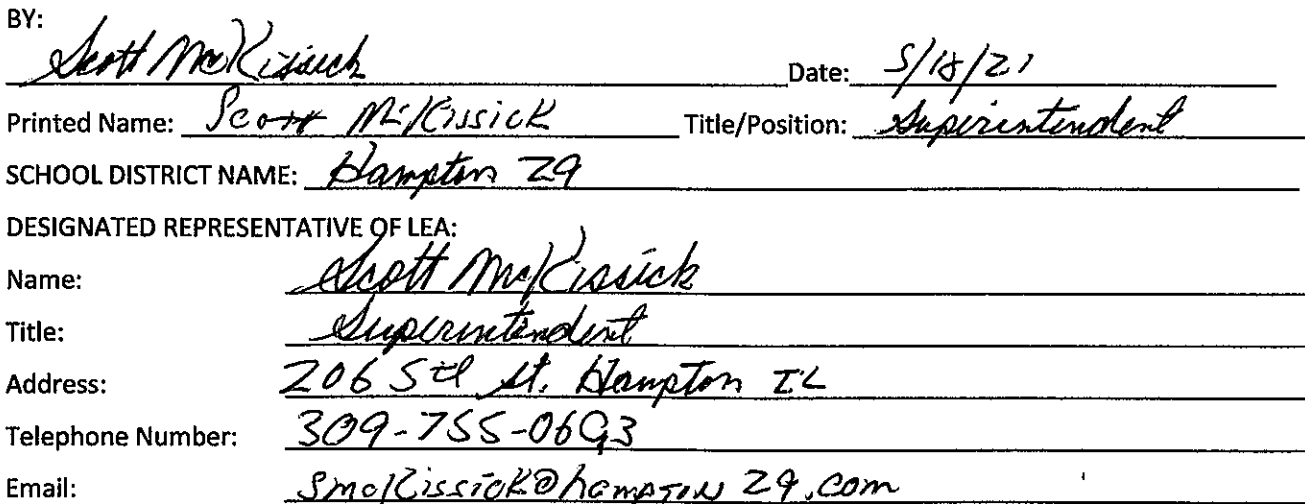 BY:
Scott McKissick Date: 5/18/21
Printed Name: Scott McKissick Title/Position: Superintendent
SCHOOL DISTRICT NAME: Hampton 29
DESIGNATED REPRESENTATIVE OF LEA:
Name: Scott McKissick
Title: Superintendent
Address: 206 5th St. Hampton IL
Telephone Number: 309-755-0693
Email: smckissick@hampton29.com